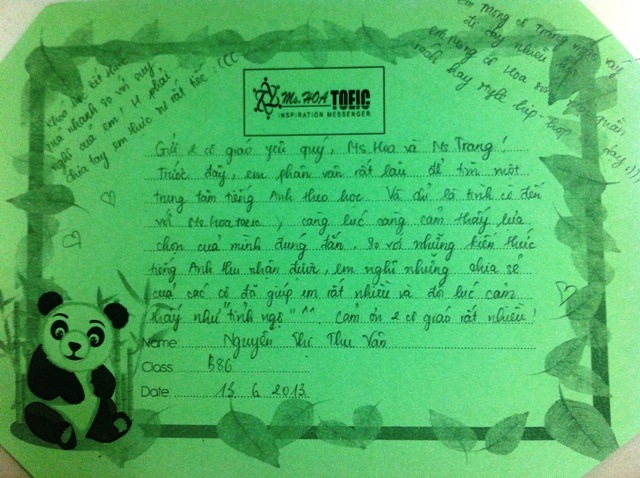 Khoá học kết thúc
quá nhanh so với suy
nghĩ của em! H phải
chia tay em thực sự rất tiếc :(((
em mong cô Trang ngày
đi dạy nhiều
em mong cô Hoa
hay style hip-hop này :))
Ms. HOA TOEIC
INSPIRATION MESSENGER
Gửi 2 cô giáo yêu quý, Ms Hoa và Ms Trang!
Trước đây, em phân vân rất lâu để tìm một
trung tâm tiếng Anh theo học. Và chỉ là tình cờ đến
với Ms.Hoa toeic, càng lúc càng cảm thấy lựa
chọn của mình đúng đắn. So với những kiến thức
tiếng Anh thu nhận được, em nghĩ những chia sẻ
của các cô đã giúp em rất nhiều và đôi lúc cảm
thấy như "tỉnh ngộ" ^^. Cảm ơn 2 cô giáo rất nhiều!
Name: Nguyễn Thị Thu Vân
Class: B86
Date: 13 6 2013